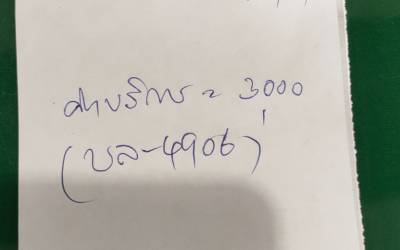 ค่าบริการ = 3000
(บล-4906)